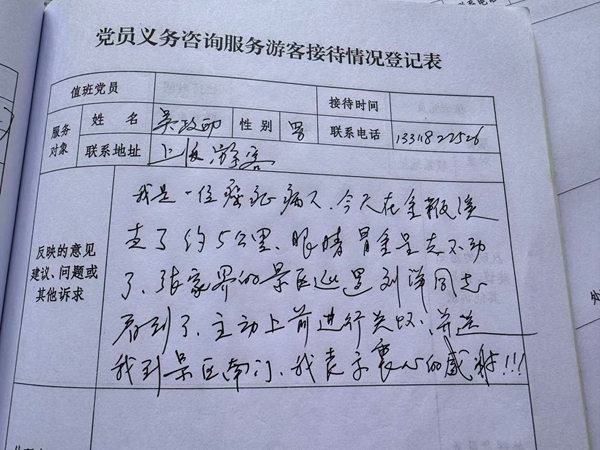 党员义务咨询服务游客接待情况登记表
值班党员 接待时间
服务对象 姓名 吴政 性别 男 联系电话 13318222526
联系地址 上海游客
反映的意见建议、问题或其他诉求
我是一位癌症病人、今天在金鞭溪
走了约5公里、眼睛冒金星走不动
了、张家界的景区巡逻刘洋同志
看到了、主动上前进行关怀、并送
我到景区南门、我表示衷心的感谢!!!